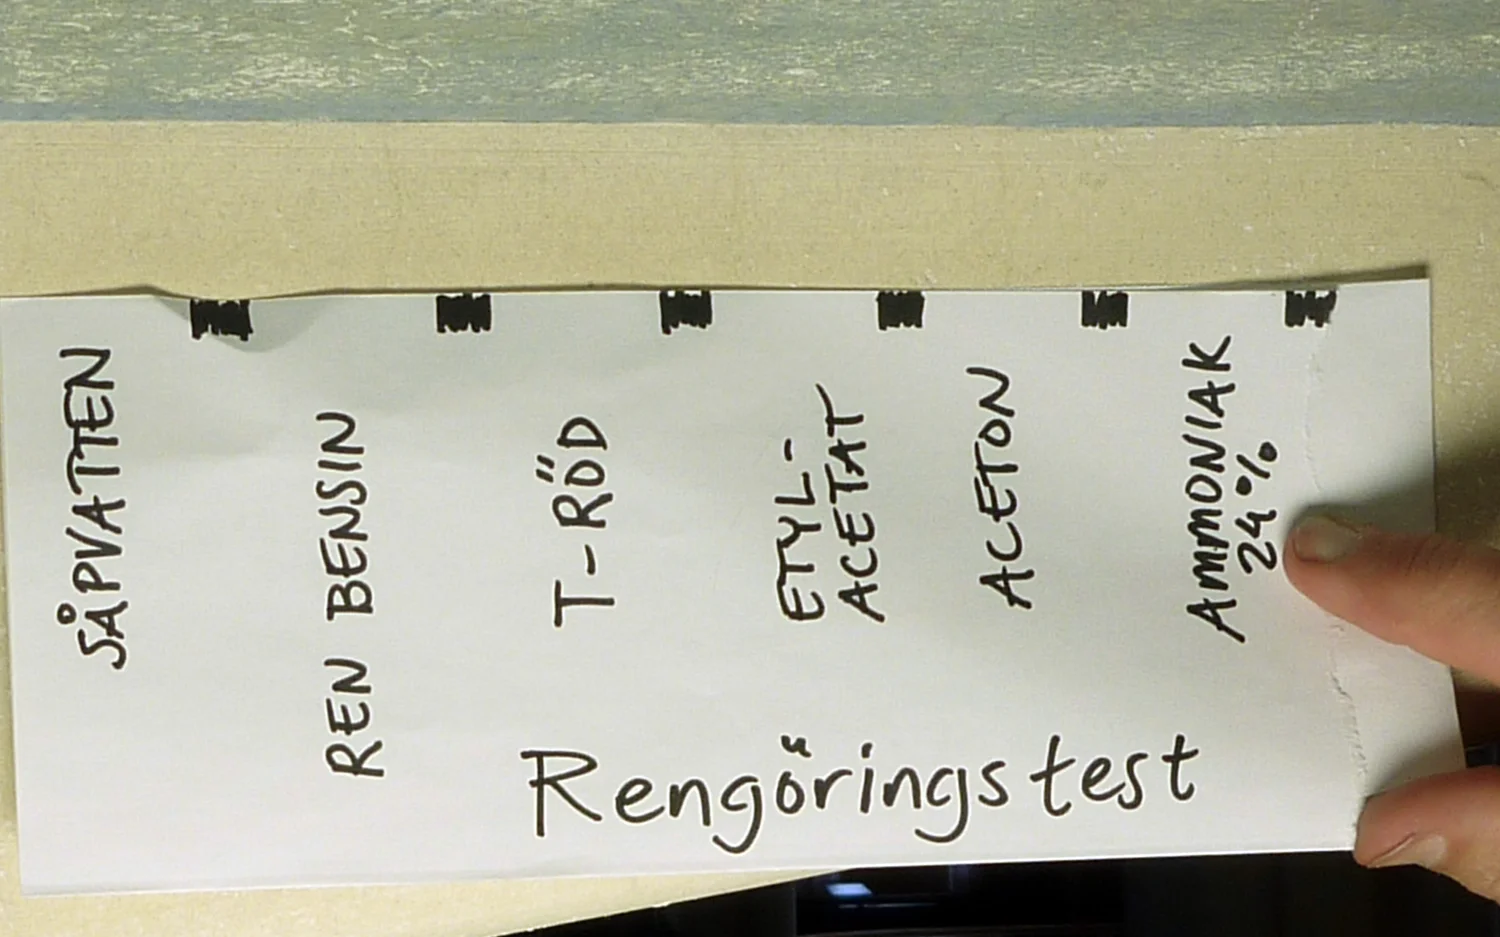 SÅPVATTEN
REN BENSIN
T-RÖD
ETYL-
ACETAT
ACETON
AMMONIAK
24%
Rengöringstest